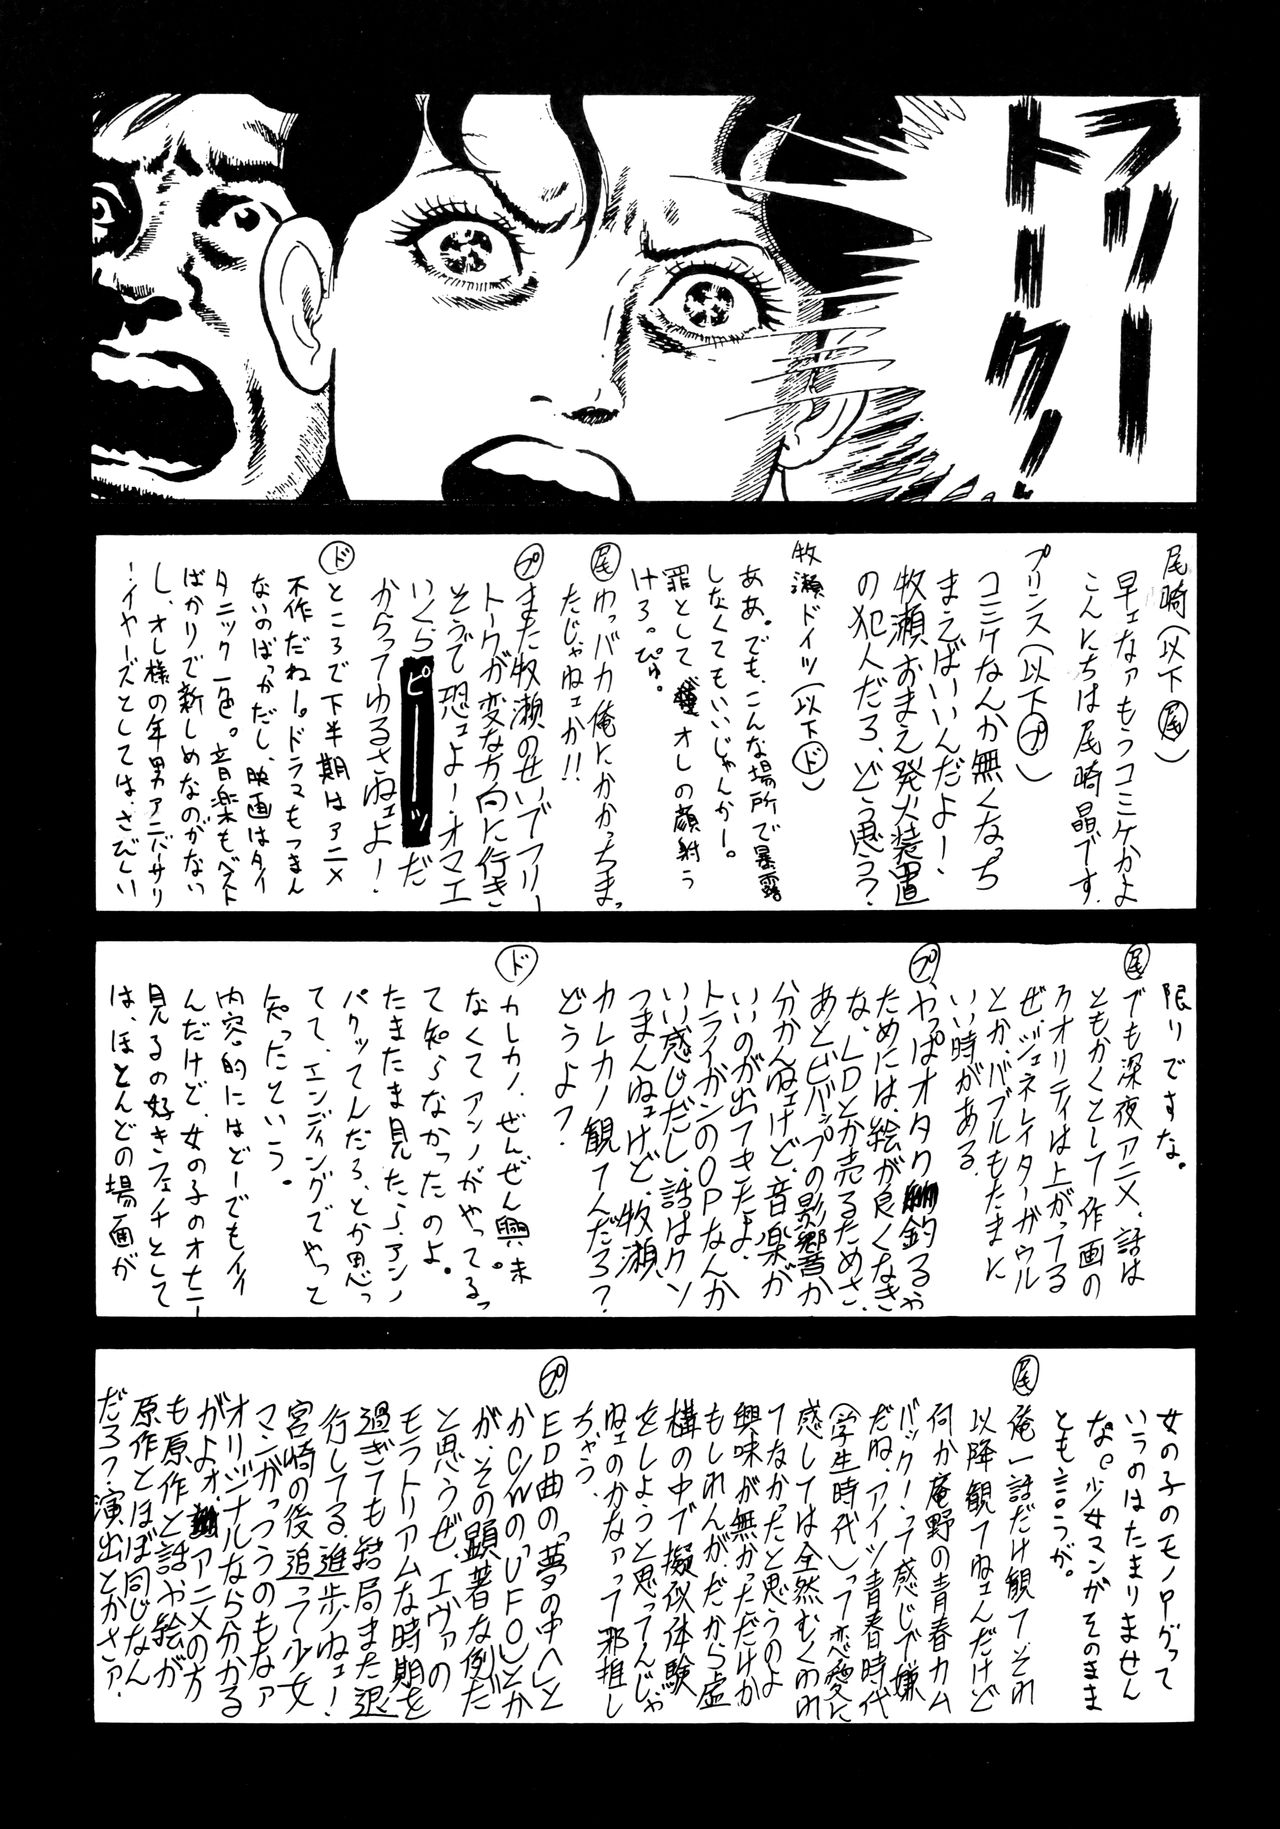 フリー
トーク!
尾崎(以下尾)
早ェなァもうコミケかよ
こんにちは尾崎晶です。
プリンス(以下プ)
コミケなんか無くなっち
まえばいいんだよー、
牧瀬おまえ発火装置
の犯人だろ、どう思う?
牧瀬ドイツ(以下ド)
ああ。でも、こんな場所で暴露
しなくてもいいじゃんかー。
罪として オレの顔射う
けろ。ぴゅ。
尾 ゆっバカ俺にかかっちまっ
たじゃねェか!!
プ また牧瀬のせいでフリー
トークが変な方向に行き
そうで恐ェよー・オマエ
いくらピーーーッだ
からってゆるさねェよ!
ド ところで下半期はアニメ
不作だねー。ドラマもつまん
ないのばっかだし、映画はタイ
タニック一色。音楽もベスト
ばかりで新しめなのがない
し、オレ様の年男アニバーサリ
ーイヤーズとしては、さびしい
限りですな。
尾 でも深夜アニメ、話は
ともかくとして作画の
クオリティは上がってる
ぜ、ジェネレイターガウル
とか、バブルもたまに
いい時がある。
プ やっぱオタク釣るゃ
ためには、絵が良くなき
な、LDとか売るためさ、
あとビバップの影響か
分かんねェけど、音楽が
いいのが出てきたよ、
トライガンのOPなんか
いい感じだし、話はクソ
つまんねェけど、牧瀬、
カレカノ観てんだろ?
どうよ?
ド カレカノ、ぜんぜん興味
なくてアンノがやってるっ
て知らなかったのよ。
たまたま見たら、アンノ
パクッてんだろ、とか思っ
てて、エンディングでやっと
知ったという。
内容的にはどーでもイイ
んだけど、女の子のオナニー
見るの好きフェチとして
は、ほとんどの場面が
女の子のモノローグって
いうのはたまりません
な。少女マンガそのまま
とも言うが。
尾 俺一話だけ観てそれ
以降観てねェんだけど
何か庵野の青春カム
バックーって感じで嫌
だね、アイツ青春時代
(学生時代)って恋愛に
感しては全然むくわれ
てなかったと思うのよ
興味が無かっただけか
もしれんが、だから虚
構の中で擬似体験
をしようと思ってんじゃ
ねェのかなァって邪推し
ちゃう。
プ ED曲の「夢の中へ」と
かC/Wの「UFO」とか
が、その顕著な例だ
と思うぜ、エヴァの
モラトリアムな時期を
過ぎても結局また退
行してる、進歩ねェ!
宮崎の後追って少女
マンガっつうのもなァ
オリジナルなら分かる
がよォ、アニメの方
も原作と話や絵が
原作とほぼ同じなん
だろ?演出とかさァ.